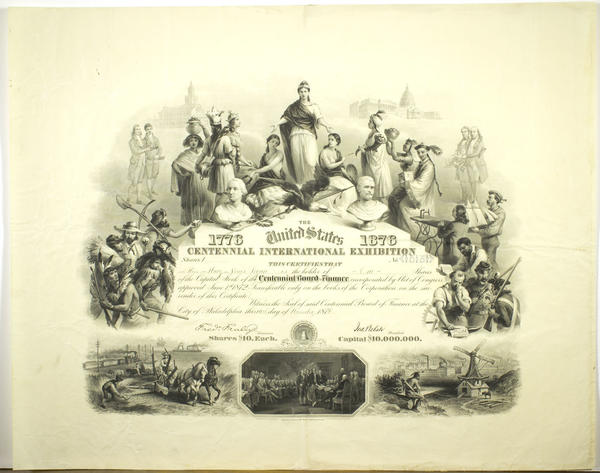 THE
1776 United States 1876
CENTENNIAL INTERNATIONAL EXHIBITION
Shares 1 No.
THIS CERTIFIES THAT
is the holder of One Shares
of the Capital Stock of the Centennial Board of Finance incorporated by Act of Congress
approved June 1st 1872. Transferable only on the books of the Corporation on the sur-
render of this Certificate.
Witness the Seal of said Centennial Board of Finance at the
City of Philadelphia this day of 187
Fred. Fraley Jno. Welsh
President
Shares $10, Each. Capital $10,000,000.